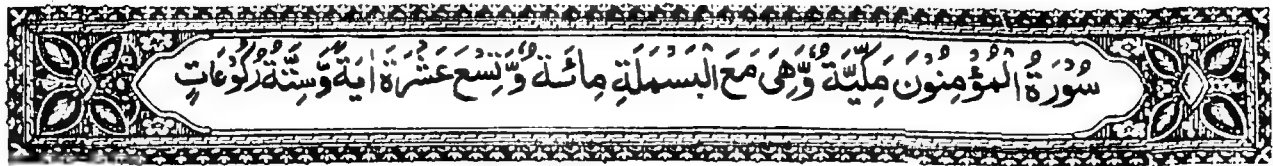 سُوْرَةُ الْمُؤْمِنُوْنَ مَكِّيَّةٌ وَّهِىَ مَعَ الْبَسْمَلَةِ مِائَةٌ وَّتِسْعَ عَشْرَةَ اٰيَةً وَّسِتَّةُ رُكُوْعَاتٍ